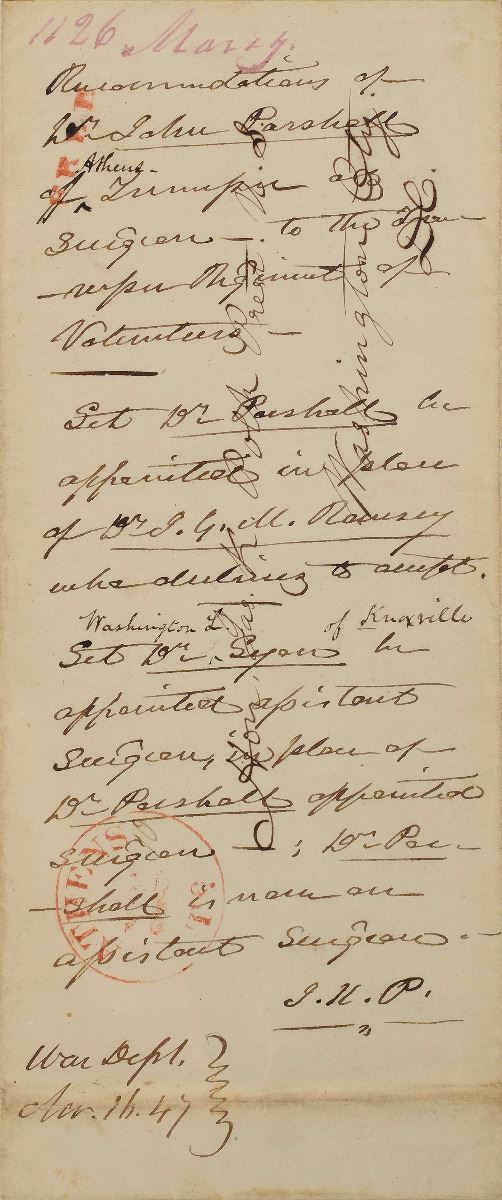 1126. Marcy.
Recommendations of
Dr. John Parshall
of Athens Tennessee as
Surgeon — to the Ten-
nessee Regiment of
Volunteers —
Let Dr. Parshall be
appointed in place
of Dr. J. G. M. Ramsey
who declines to accept.
Washington L. of Knoxville
Let Dr. be
appointed assistant
Surgeon, in place of
Dr. Parshall appointed
Surgeon — ; Dr. Par-
-shall is now an
assistant Surgeon —
J. K. P.
War Dept.
Nov. 16. 47
FREE
ATHENS
Hon. Jas. K. Polk Prest U. S.
Washington City
D.C.